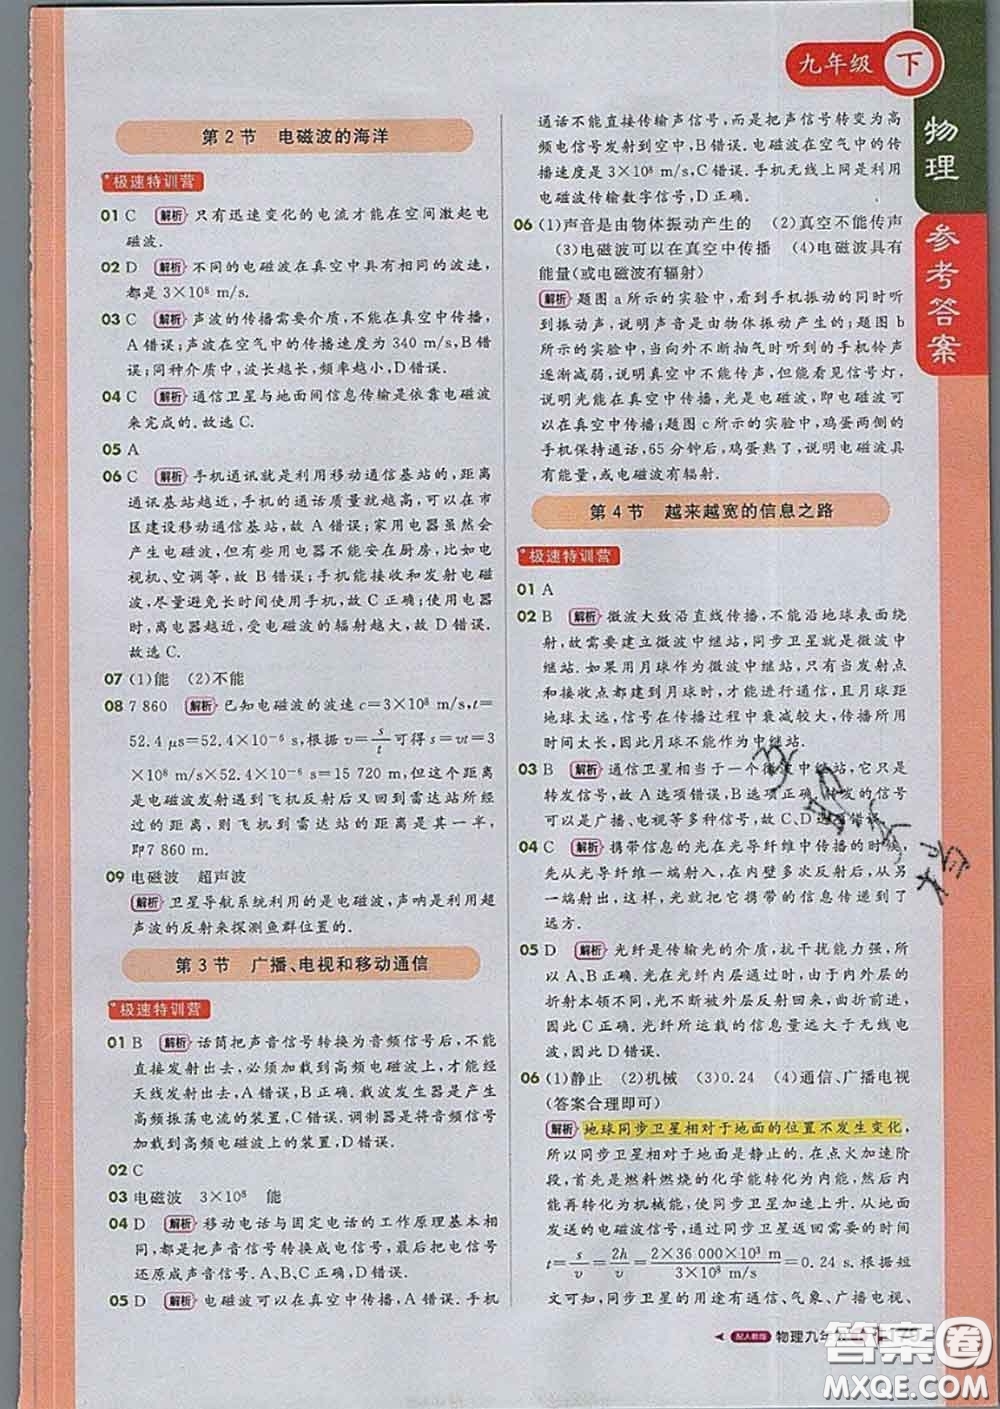 九年级 下
物理
参考答案
第2节 电磁波的海洋
极速特训营
01 C 解析 只有迅速变化的电流才能在空间激起电
磁波.
02 D 解析 不同的电磁波在真空中具有相同的波速,
都是 3×10⁸ m/s.
03 C 解析 声波的传播需要介质,不能在真空中传播,
A错误;声波在空气中的传播速度为 340 m/s,B错
误;同种介质中,波长长,频率越小,D错误.
04 C 解析 通信卫星与地面间信息传输是依靠电磁波
来完成的.故选C.
05 A
06 C 解析 手机通讯就是利用移动通信基站的,距离
通讯基站越近,手机的通话质量就越高,可以在市
区建设移动通信基站,故A错误;家用电器虽然会
产生电磁波,但不能都安在厨房,比如电
视机、空调等,故B错误;手机能接收和发射电磁
波,尽量避免长时间使用手机,故C正确;使用电器
时,离电器越近,受电磁波的辐射越大,故D错误.
故选C.
07 (1)能 (2)不能
08 7 860 解析 已知电磁波的波速c=3×10⁸ m/s,t=
52.4 μs=52.4×10⁻⁶ s,根据v=s/t可得s=vt=3
×10⁸ m/s×52.4×10⁻⁶ s=15 720 m,但这个距离
是电磁波发射到飞机反射后又回到雷达站所经
过的距离,则飞机到雷达站的距离是其一半,
即7 860 m.
09 电磁波 超声波
解析 卫星导航系统利用的是电磁波,声呐是利用超
声波的反射来探测鱼群位置的.
第3节 广播、电视和移动通信
极速特训营
01 B 解析 话筒把声音信号转换为音频信号后,不能
直接发射出去,必须加载到高频电磁波上,才能经
天线发射出去,A错误,B正确.载波发生器是产生
高频振荡电流的装置,C错误.调制器是将音频信号
加载到高频电磁波上的装置,D错误.
02 C
03 电磁波 3×10⁸ 能
04 D 解析 移动电话与固定电话的工作原理基本相
同,都是把声音信号转换成电信号,最后把电信号
还原成声音信号.A、B、C错误,D正确.
05 D 解析 电磁波可以在真空中传播,A错误.手机
通话不能直接传输声信号,而是把声信号转变为高
频电信号发射到空中,B错误.电磁波在空气中的传
播速度是 3×10⁸ m/s,C错误.手机无线上网是利用
电磁波传输数字信号,D正确.
06 (1)声音是由物体振动产生的 (2)真空不能传声
(3)电磁波可以在真空中传播 (4)电磁波具有
能量(或电磁波有辐射)
解析 题图a所示的实验中,看到手机振动的同时听
到振动声,说明声音是由物体振动产生的;题图b
所示的实验中,当向外不断抽气时听到的手机铃声
逐渐减弱,说明真空中不能传声,但能看见信号灯,
说明光能在真空中传播,光是电磁波,则电磁波可
以在真空中传播;题图c所示的实验中,鸡蛋两侧的
手机保持通话,65分钟后,鸡蛋熟了,说明电磁波具
有能量,或电磁波有辐射.
第4节 越来越宽的信息之路
极速特训营
01 A
02 B 解析 微波大致沿直线传播,不能沿地球表面绕
射,故需要建立微波中继站,同步卫星就是微波中
继站.如果用月球作为微波中继站,只有当发射点
和接收点都见到月球时,才能进行通信,且月球距
地球太远,信号在传播过程中衰减较大,传播所用
时间太长,因此月球不能作为中继站.
03 B 解析 通信卫星相当于一个微波中继站,它只是
转发信号,故A选项错误,B选项正确.转发的信号
可以是广播、电视等多种信号,故C、D选项错误.
04 C 解析 携带信息的光在光导纤维中传播的时候,
先从光导纤维一端射入,在内壁多次反射,从另
一端射出,这样就把它携带的信息传递到了
远方.
05 D 解析 光纤是传输光的介质,抗干扰能力强,所
以A、B正确.光在光纤内层通过时,由于内外层的
折射本领不同,光就被外层反射回来,曲折前进,
因此C正确.光纤所运载的信息量远大于无线电
波,因此D错误.
06 (1)静止 (2)机械 (3)0.24 (4)通信、广播电视
(答案合理即可)
解析 地球同步卫星相对于地面的位置不发生变化,
所以同步卫星相对于地面是静止的.在点火加速升
空阶段,首先是燃料燃烧的化学能转化为内能,然后
内能再转化为机械能,使同步卫星加速上升.从地面
发送的电磁波信号,通过同步卫星返回需要的时间
t=s/v=2h/v=2×36 000×10³ m/3×10⁸ m/s=0.24 s.根据短
文可知,同步卫星的用途有通信、气象、广播电视等.
配人教版 物理九年
答案圈
MXQE.COM